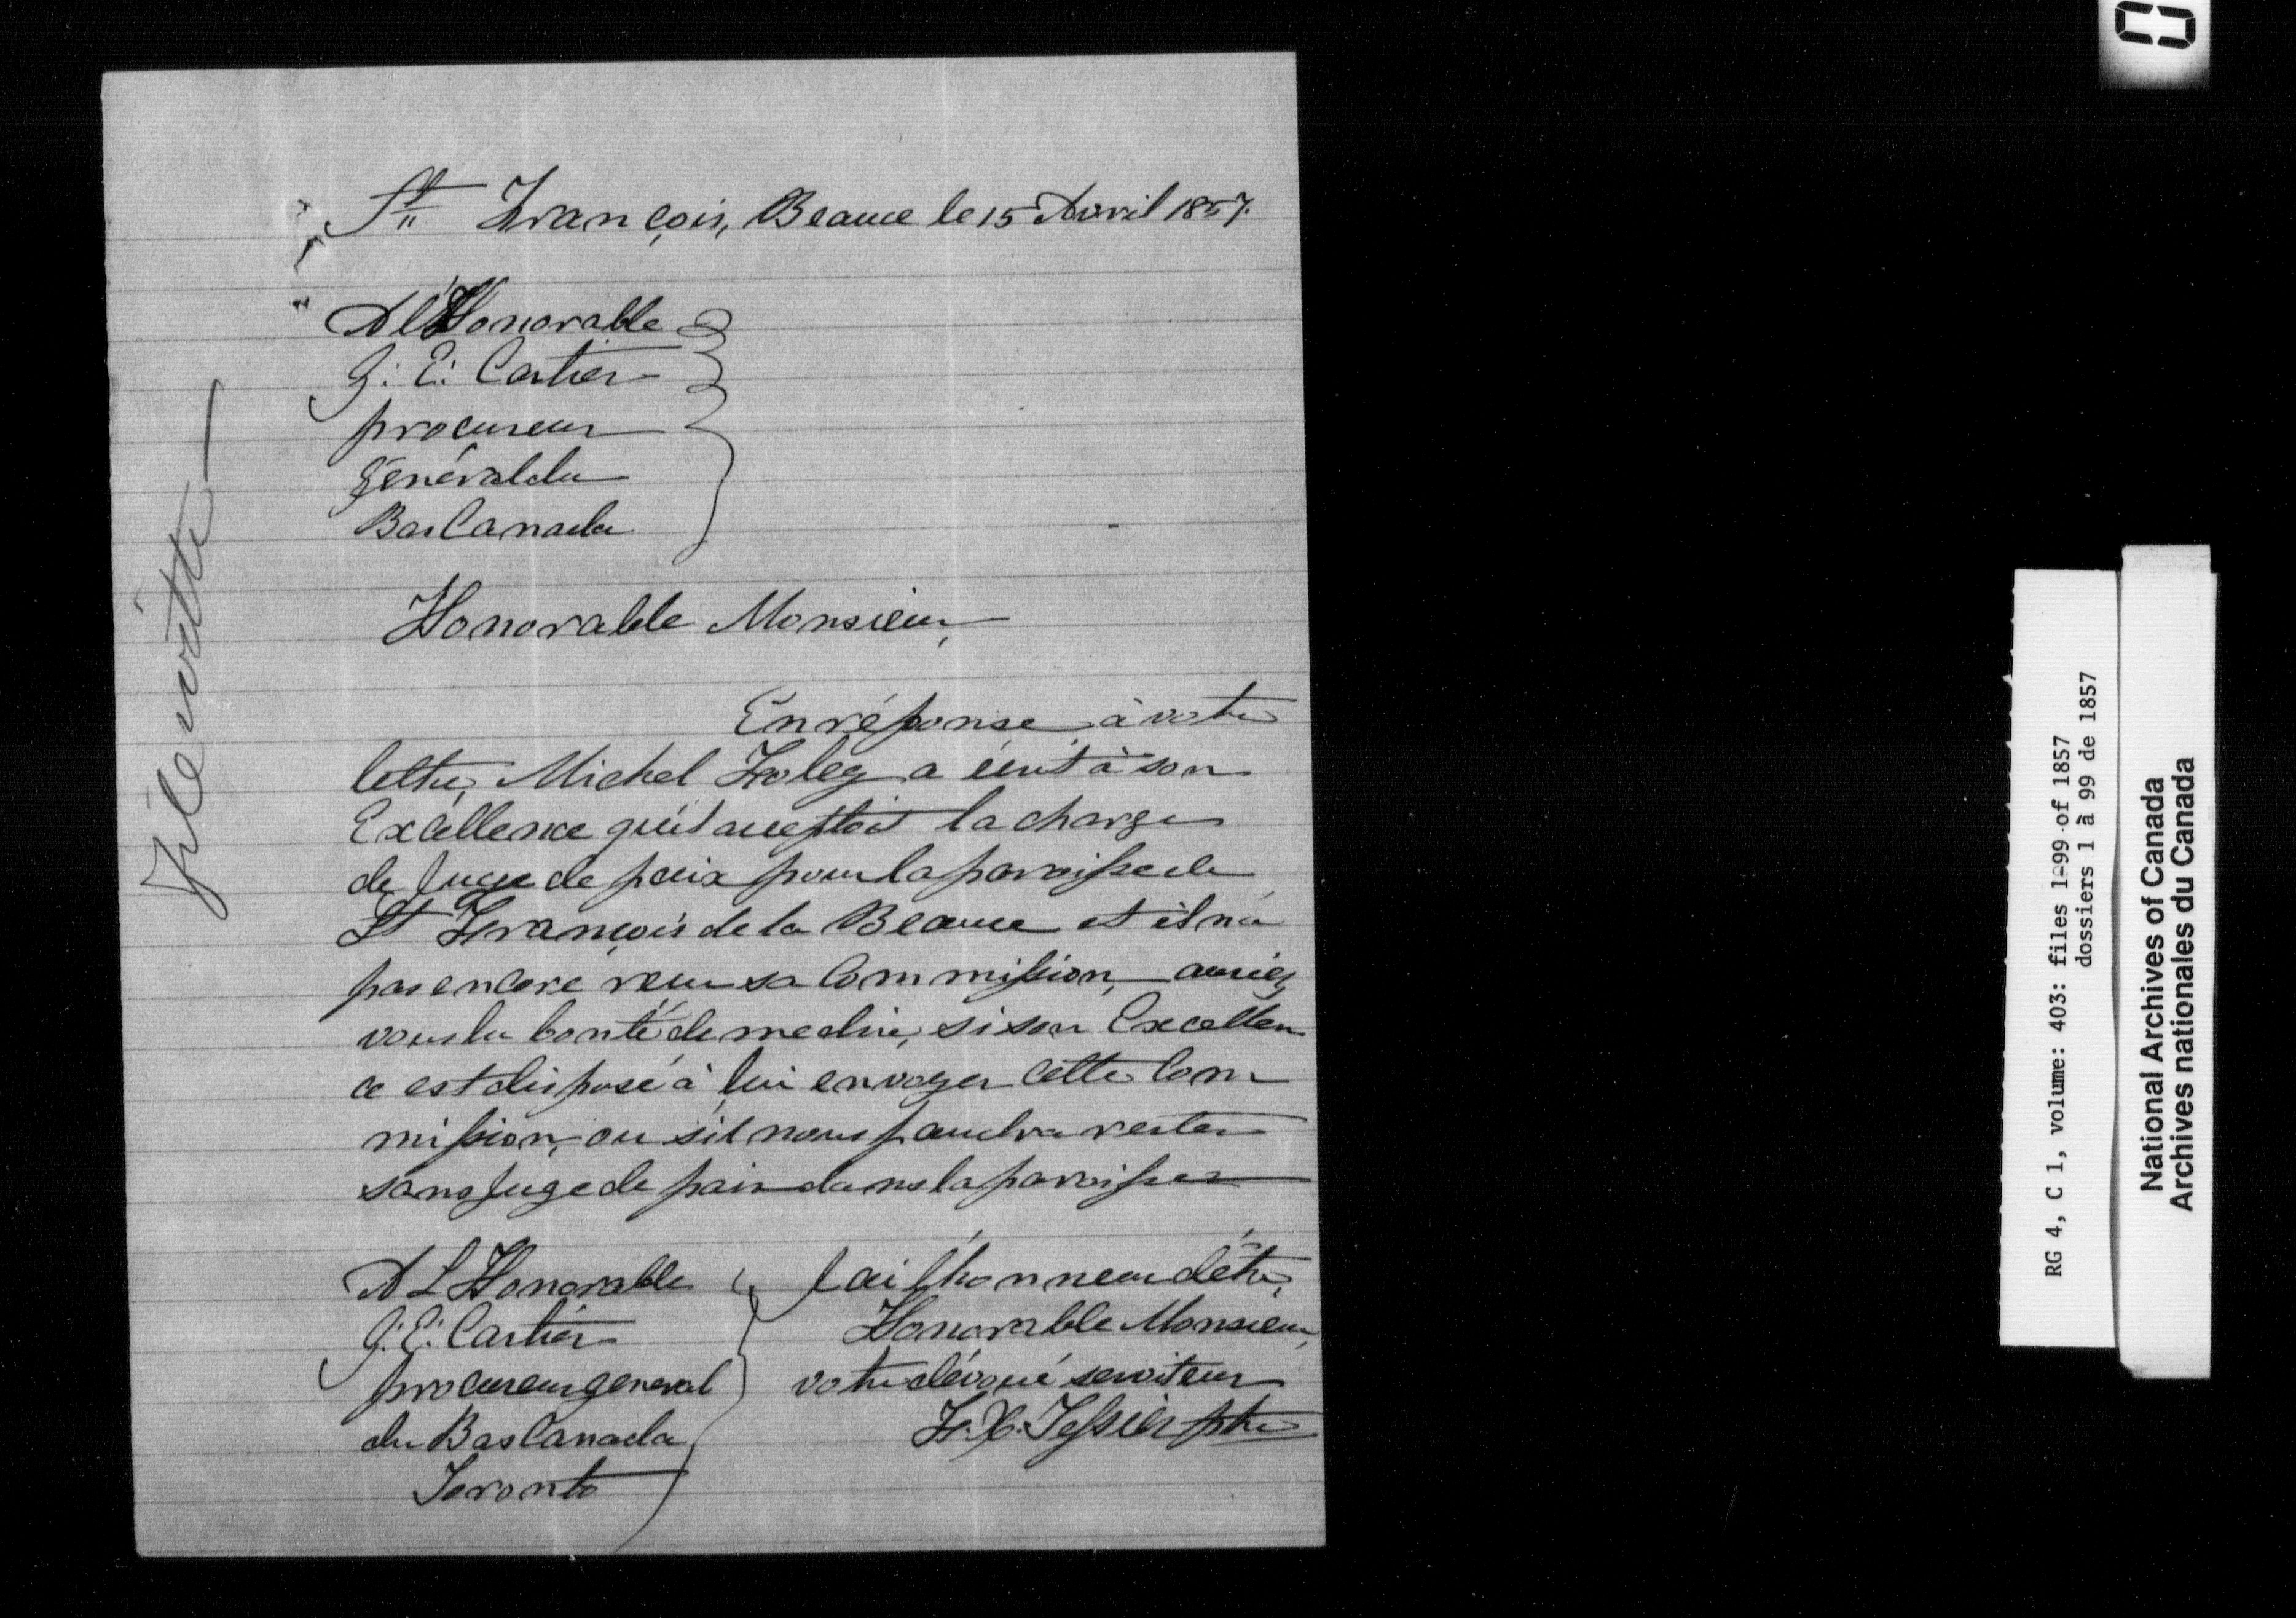 St François, Beauce le 15 Avril 1857.
A l'Honorable
G: E: Cartier
procureur
général du
Bas Canada
Honorable Monsieur,
En réponse à votre
lettre, Michel a écrit à son
Excellence qu'il acceptait la charge
de Juge de paix pour la paroisse de
St François de la Beauce et il n'a
pas encore reçu sa Commission, auriez
vous la bonté de me dire, si son Excellen
ce est disposé à lui envoyer cette Com
mission, ou s'il nous faudra rester
sans Juge de paix dans la paroisse
A L'Honorable
G. E. Cartier
procureur general
du Bas Canada
Toronto
J'ai l'honneur d'être,
Honorable Monsieur,
votre dévoué serviteur
F. X. Tessier ptre
File
RG 4, C 1, volume: 403: files 1-99 of 1857
dossiers 1 à 99 de 1857
National Archives of Canada
Archives nationales du Canada
0